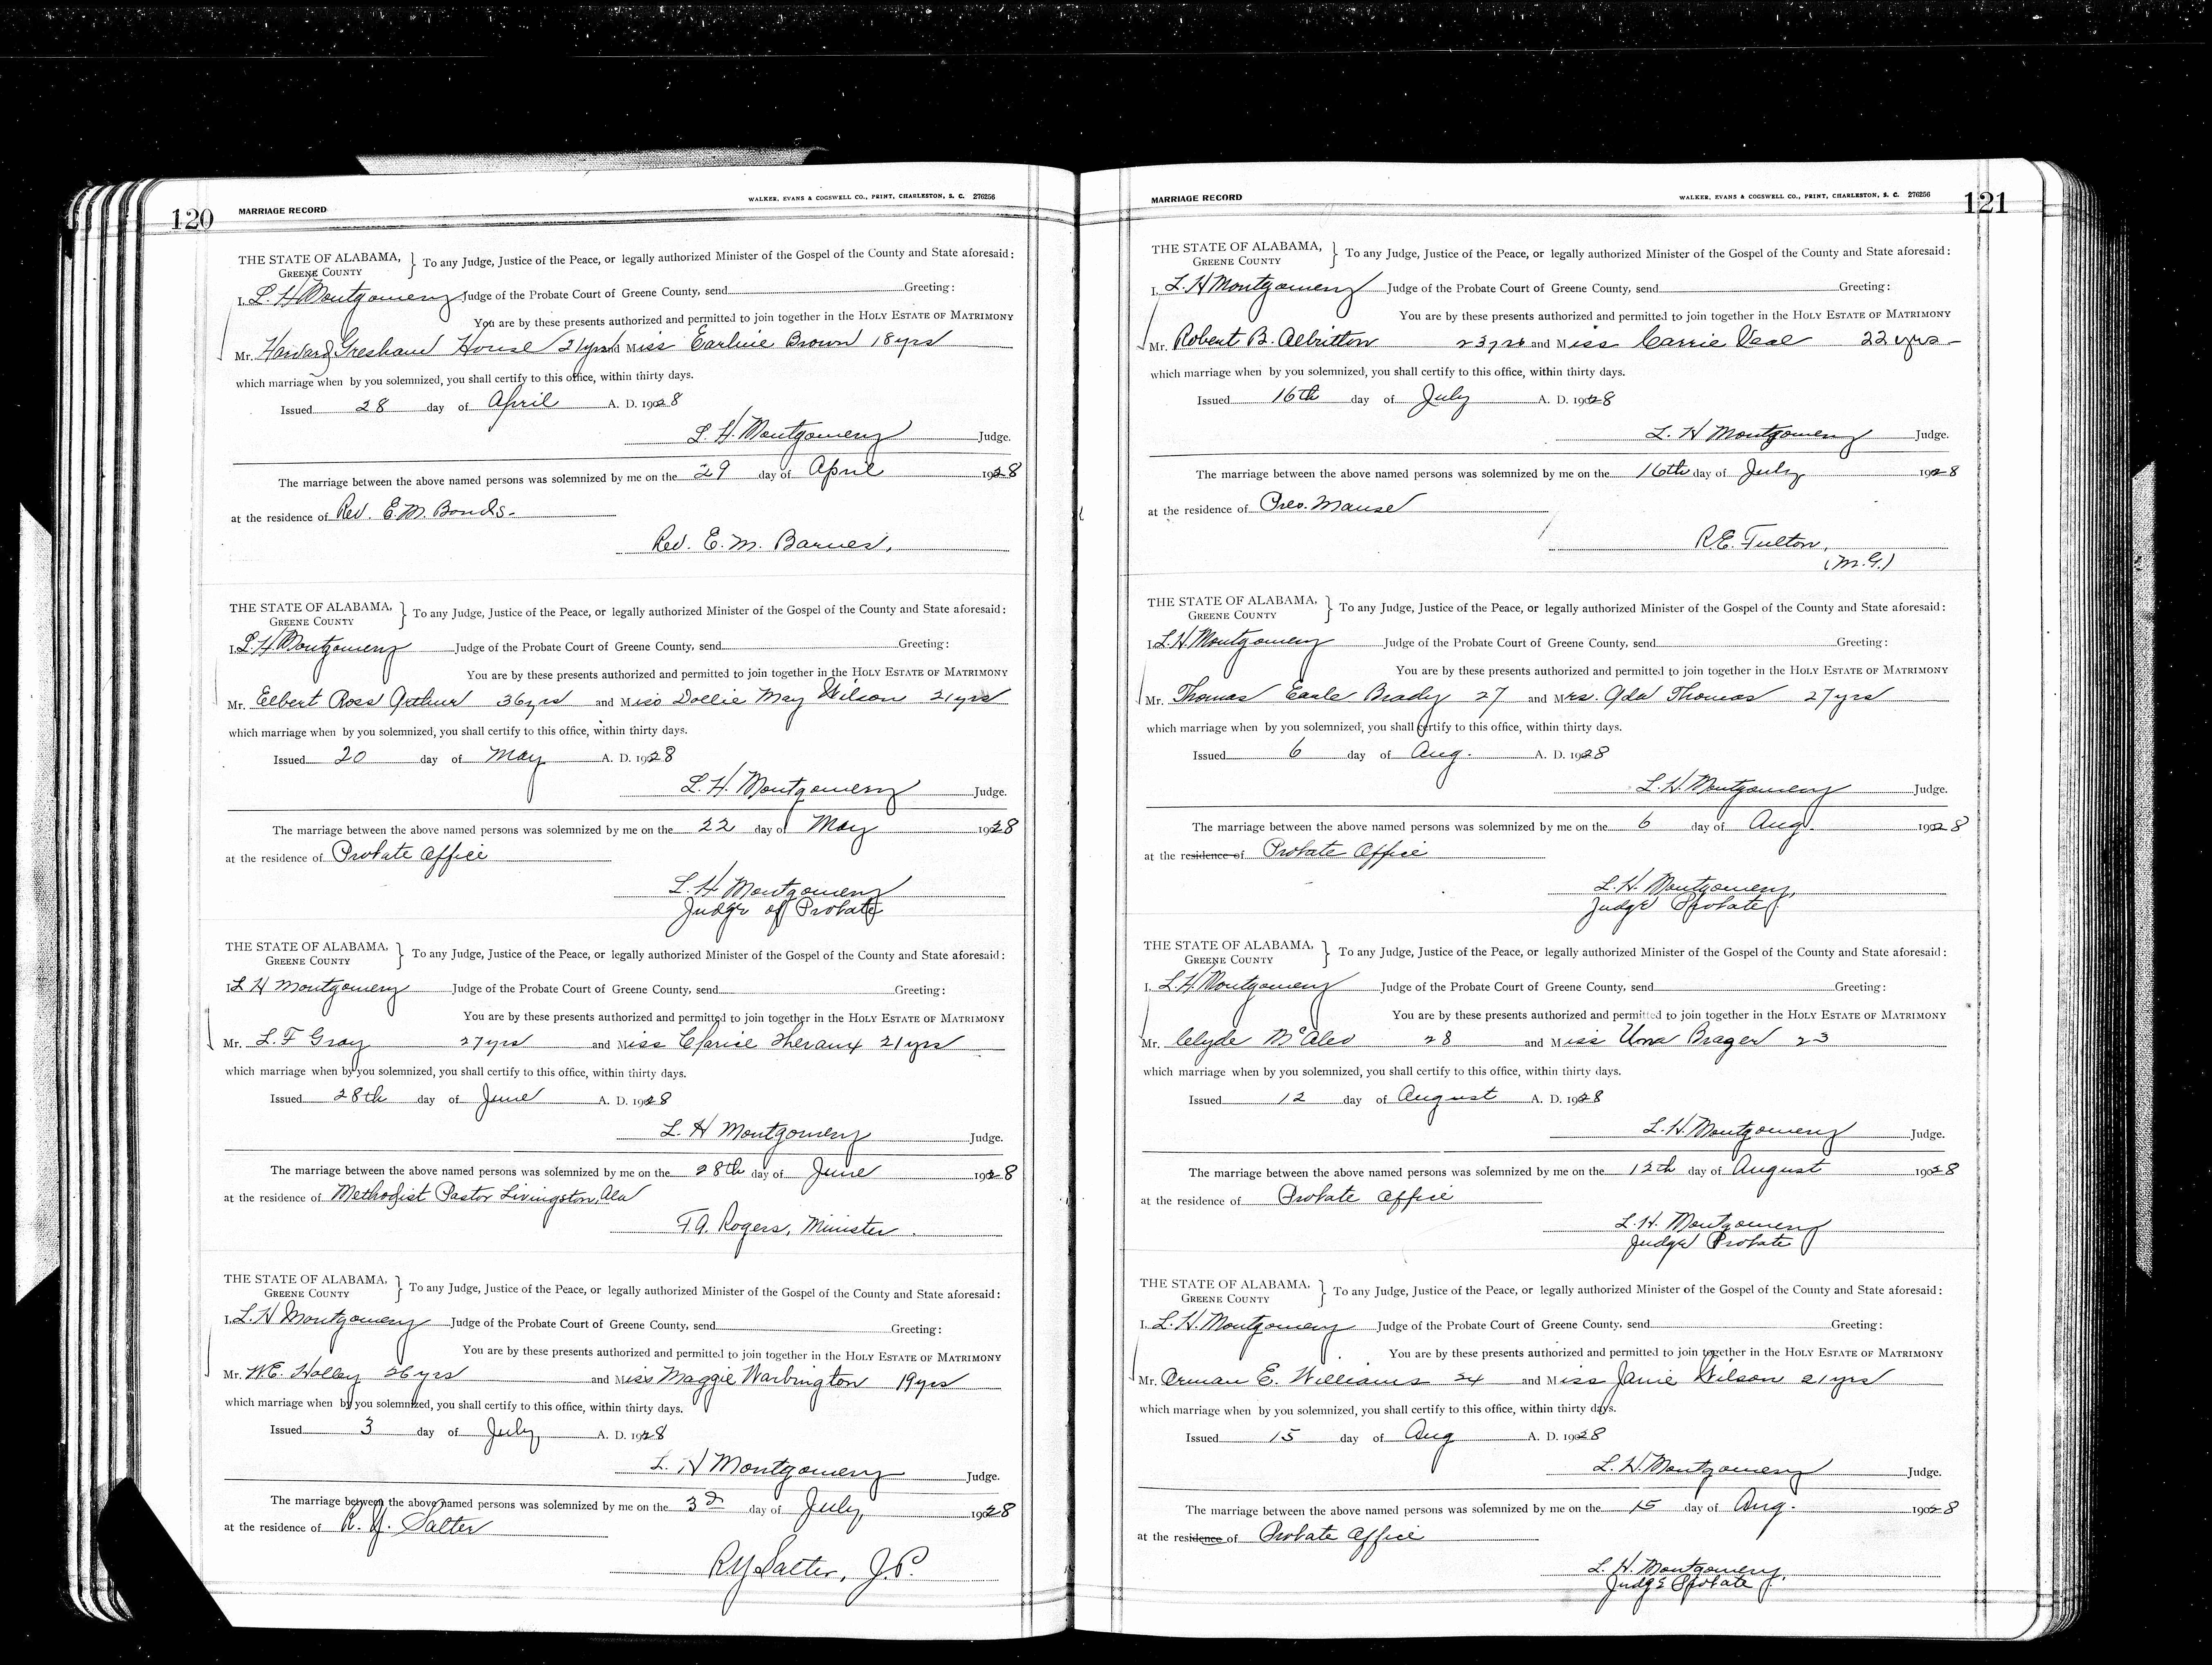 120 MARRIAGE RECORD WALKER, EVANS & COGSWELL CO., PRINT, CHARLESTON, S. C. 276256
THE STATE OF ALABAMA, GREENE COUNTY } To any Judge, Justice of the Peace, or legally authorized Minister of the Gospel of the County and State aforesaid:
I, L. H Montgomery Judge of the Probate Court of Greene County, send Greeting:
You are by these presents authorized and permitted to join together in the HOLY ESTATE OF MATRIMONY
Mr. Gresham House 21 yrs and Miss Earline Brown 18 yrs
which marriage when by you solemnized, you shall certify to this office, within thirty days.
Issued 28 day of April A. D. 1928
L. H. Montgomery Judge.
The marriage between the above named persons was solemnized by me on the 29 day of April 1928
at the residence of Rev. E. M. Bonds.
Rev. E. M. Barnes.
THE STATE OF ALABAMA, GREENE COUNTY } To any Judge, Justice of the Peace, or legally authorized Minister of the Gospel of the County and State aforesaid:
I, L. H Montgomery Judge of the Probate Court of Greene County, send Greeting:
You are by these presents authorized and permitted to join together in the HOLY ESTATE OF MATRIMONY
Mr. Elbert Ross Arthur 36 yrs and Miss Dollie May Wilson 21 yrs
which marriage when by you solemnized, you shall certify to this office, within thirty days.
Issued 20 day of May A. D. 1928
L. H. Montgomery Judge.
The marriage between the above named persons was solemnized by me on the 22 day of May 1928
at the residence of Probate Office
L. H Montgomery
Judge of Probate
THE STATE OF ALABAMA, GREENE COUNTY } To any Judge, Justice of the Peace, or legally authorized Minister of the Gospel of the County and State aforesaid:
I L H Montgomery Judge of the Probate Court of Greene County, send Greeting:
You are by these presents authorized and permitted to join together in the HOLY ESTATE OF MATRIMONY
Mr. L. F Gray 27 yrs and Miss 21 yrs
which marriage when by you solemnized, you shall certify to this office, within thirty days.
Issued 28th day of June A. D. 1928
L. H Montgomery Judge.
The marriage between the above named persons was solemnized by me on the 28th day of June 1928
at the residence of Methodist Pastor Livingston, Ala
T. A. Rogers, Minister.
THE STATE OF ALABAMA, GREENE COUNTY } To any Judge, Justice of the Peace, or legally authorized Minister of the Gospel of the County and State aforesaid:
I, L. H Montgomery Judge of the Probate Court of Greene County, send Greeting:
You are by these presents authorized and permitted to join together in the HOLY ESTATE OF MATRIMONY
Mr. W. E. Holley 26 yrs and Miss Maggie Warbington 19 yrs
which marriage when by you solemnized, you shall certify to this office, within thirty days.
Issued 3 day of July A. D. 1928
L. H Montgomery Judge.
The marriage between the above named persons was solemnized by me on the 3d day of July 1928
at the residence of R. Y. Salter
R Y Salter, J. P.
MARRIAGE RECORD WALKER, EVANS & COGSWELL CO., PRINT, CHARLESTON, S. C. 276256 121
THE STATE OF ALABAMA, GREENE COUNTY } To any Judge, Justice of the Peace, or legally authorized Minister of the Gospel of the County and State aforesaid:
I, L. H Montgomery Judge of the Probate Court of Greene County, send Greeting:
You are by these presents authorized and permitted to join together in the HOLY ESTATE OF MATRIMONY
Mr. Robert B. Albritton 23 yrs and Miss Carrie Veal 22 yrs
which marriage when by you solemnized, you shall certify to this office, within thirty days.
Issued 16th day of July A. D. 1928
L. H Montgomery Judge.
The marriage between the above named persons was solemnized by me on the 16th day of July 1928
at the residence of Pres. Manse
R. E. Fulton,
(M. G.)
THE STATE OF ALABAMA, GREENE COUNTY } To any Judge, Justice of the Peace, or legally authorized Minister of the Gospel of the County and State aforesaid:
I L. H. Montgomery Judge of the Probate Court of Greene County, send Greeting:
You are by these presents authorized and permitted to join together in the HOLY ESTATE OF MATRIMONY
Mr. Thomas Earle Brady 27 and Mrs. Ada Thomas 27 yrs
which marriage when by you solemnized, you shall certify to this office, within thirty days.
Issued 6 day of Aug. A. D. 1928
L. H. Montgomery Judge.
The marriage between the above named persons was solemnized by me on the 6 day of Aug. 1928
at the residence of Probate Office
L. H. Montgomery,
Judge Probate
THE STATE OF ALABAMA, GREENE COUNTY } To any Judge, Justice of the Peace, or legally authorized Minister of the Gospel of the County and State aforesaid:
I, L. H. Montgomery Judge of the Probate Court of Greene County, send Greeting:
You are by these presents authorized and permitted to join together in the HOLY ESTATE OF MATRIMONY
Mr. Clyde 28 and Miss Una Brager 23
which marriage when by you solemnized, you shall certify to this office, within thirty days.
Issued 12 day of August A. D. 1928
L. H. Montgomery Judge.
The marriage between the above named persons was solemnized by me on the 12th day of August 1928
at the residence of Probate Office
L. H. Montgomery
Judge Probate
THE STATE OF ALABAMA, GREENE COUNTY } To any Judge, Justice of the Peace, or legally authorized Minister of the Gospel of the County and State aforesaid:
I, L. H. Montgomery Judge of the Probate Court of Greene County, send Greeting:
You are by these presents authorized and permitted to join together in the HOLY ESTATE OF MATRIMONY
Mr. Orman E. Williams 24 and Miss Janie Wilson 21 yrs
which marriage when by you solemnized, you shall certify to this office, within thirty days.
Issued 15 day of Aug A. D. 1928
L. H. Montgomery Judge.
The marriage between the above named persons was solemnized by me on the 15 day of Aug. 1928
at the residence of Probate Office
L. H. Montgomery,
Judge Probate